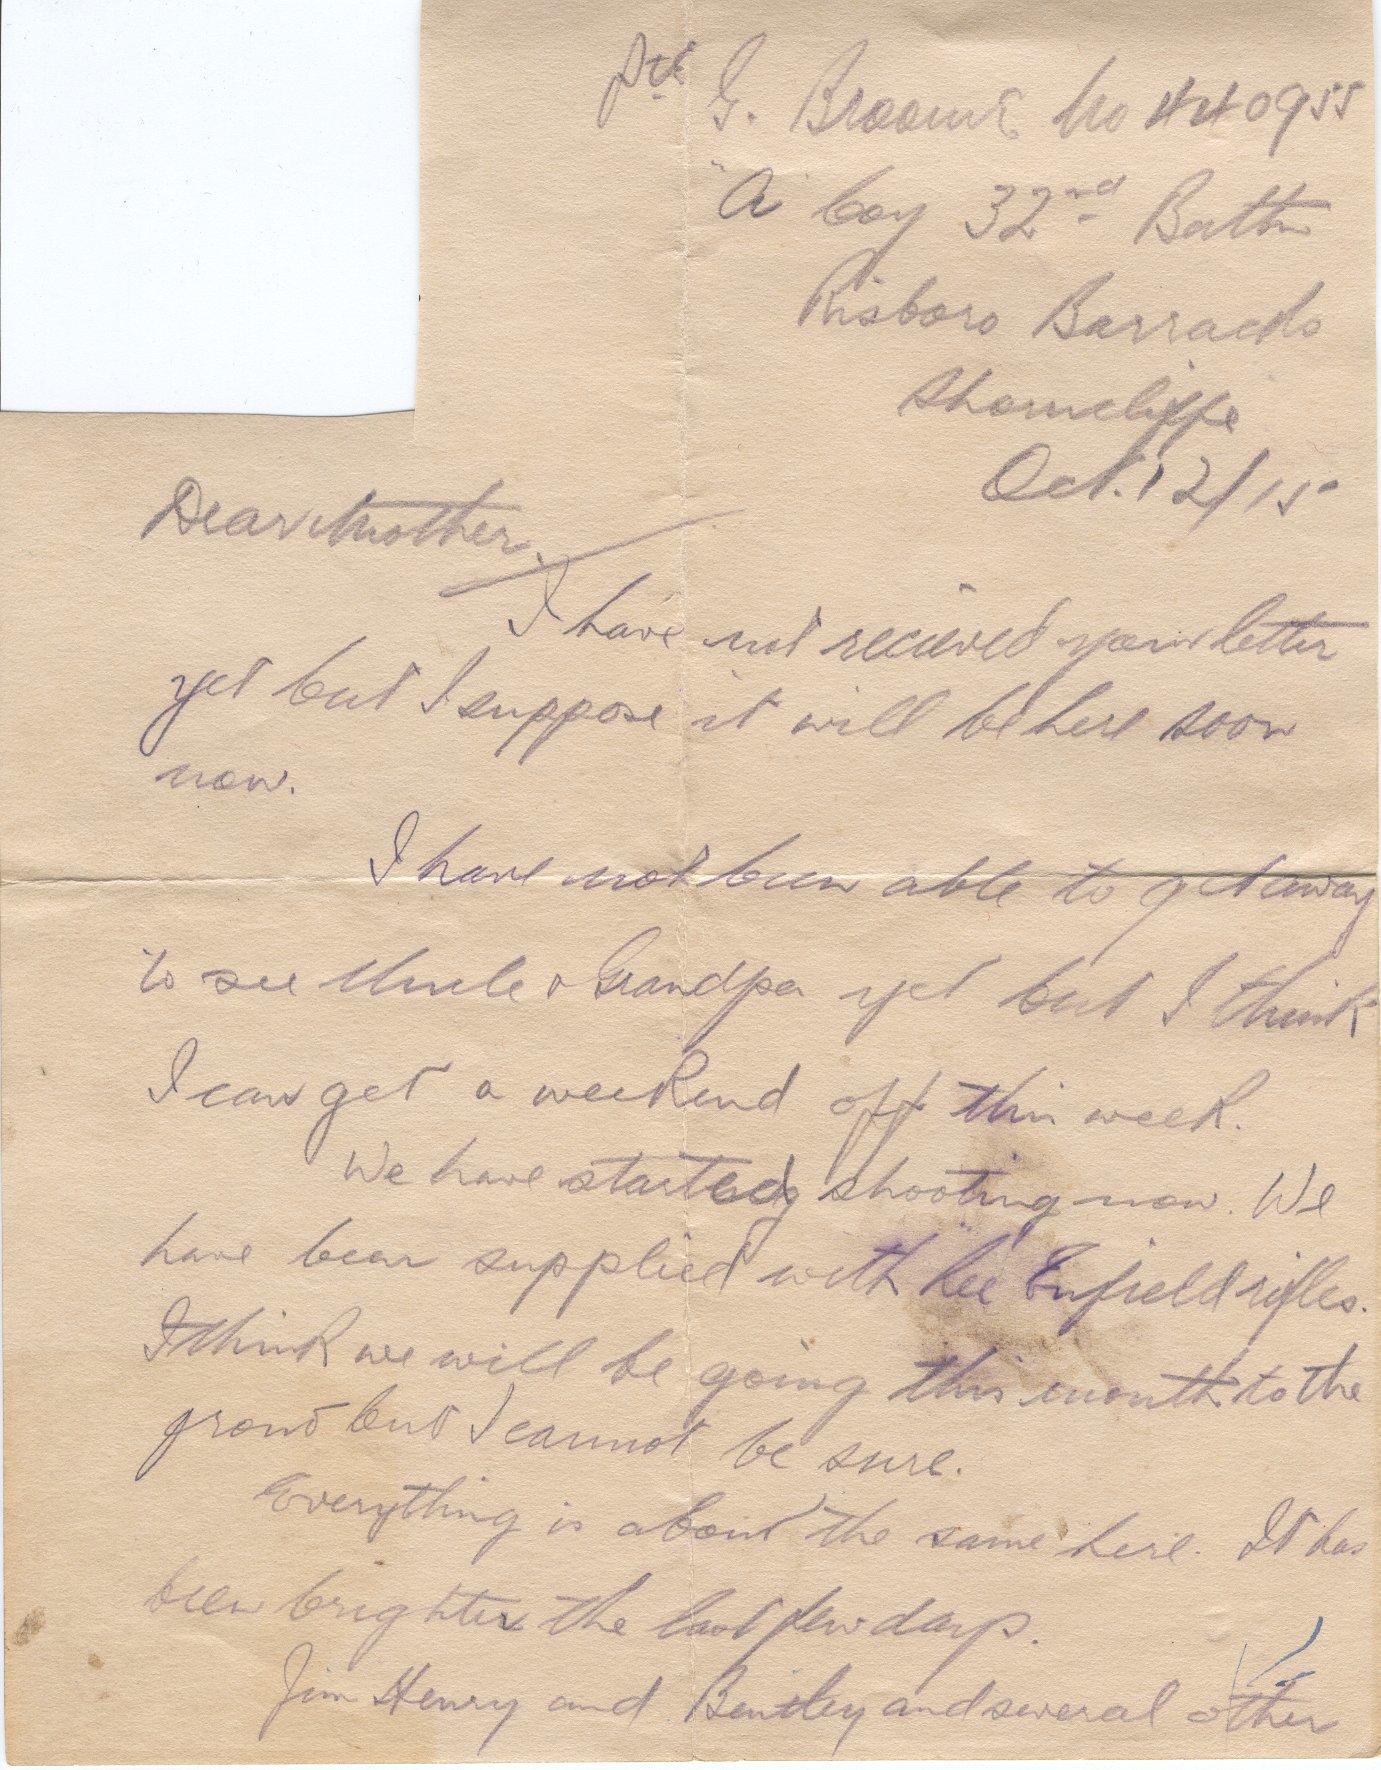 Pvt G. Broome No 440955
"A" Coy 32nd Battn
Risboro Barracks
Shorncliffe
Oct. 12/15
Dear Mother,
I have not recieved your letter
yet but I suppose it will be here soon
now.
I have not been able to get away
to see Uncle & Grandpa yet but I think
I can get a weekend off this week.
We have started shooting now. We
have bean supplied with "Lee" Enfield rifles.
I think we will be going this month to the
front but I cannot be sure.
Everything is about the same here. It has
been brighter the last few days.
Jim Henry and Bentley and several other